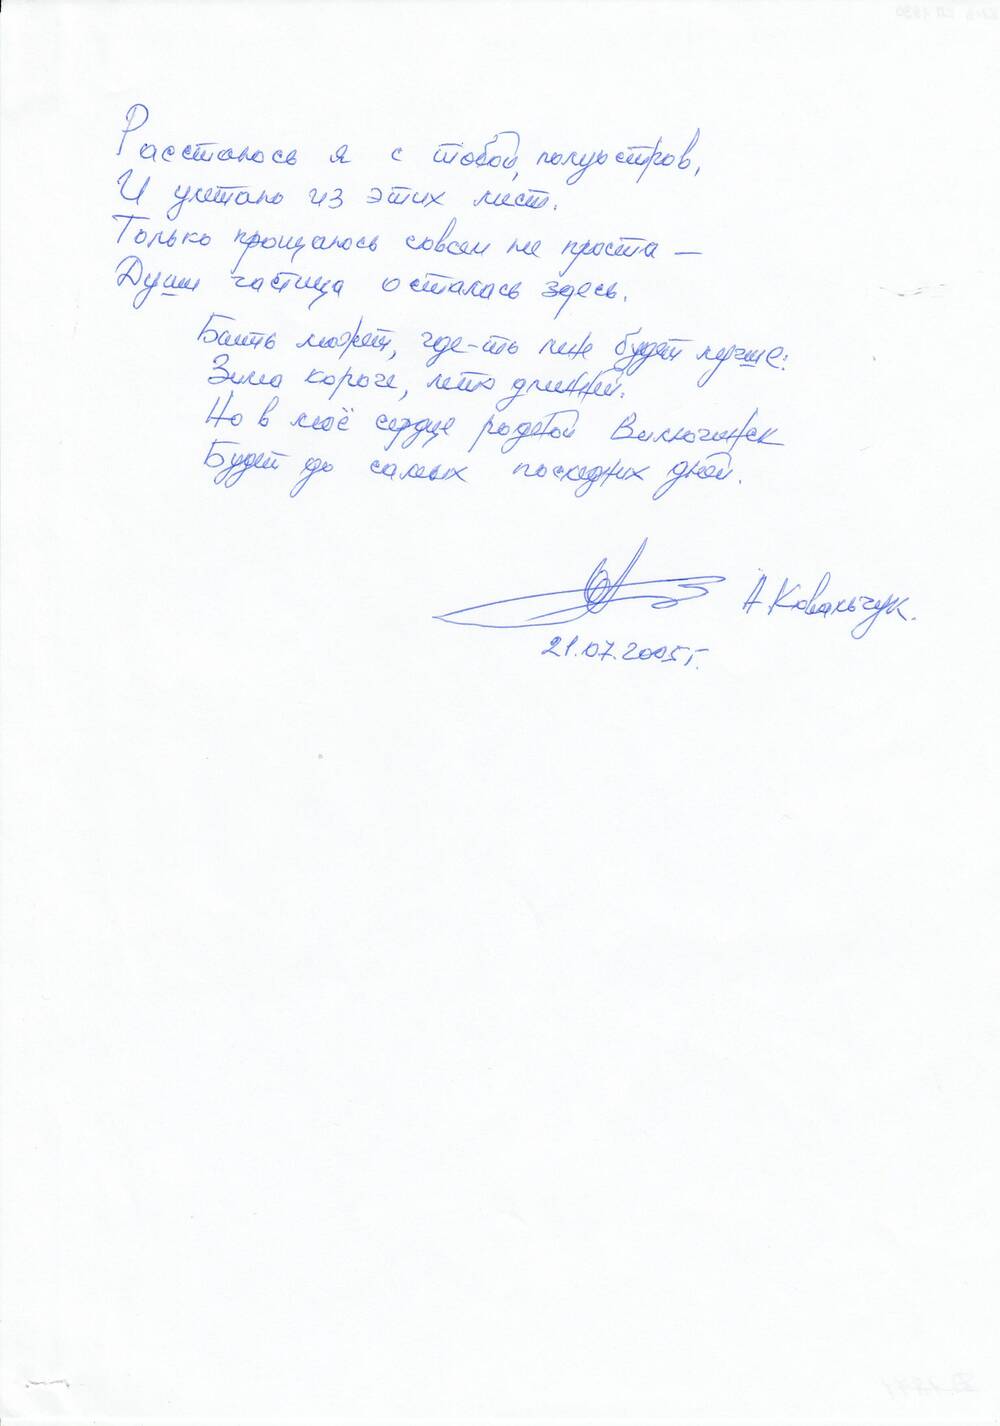 Расстаюсь я с тобой, полуостров,
И улетаю из этих мест.
Только прощаюсь совсем не проста —
Души частица осталась здесь.
Быть может, где-то мне будет лучше:
Зима короче, лето длинней.
Но в моё сердце родной Вилючинск
Будет до самых последних дней.
А. Ковальчук.
21.07.2005 г.